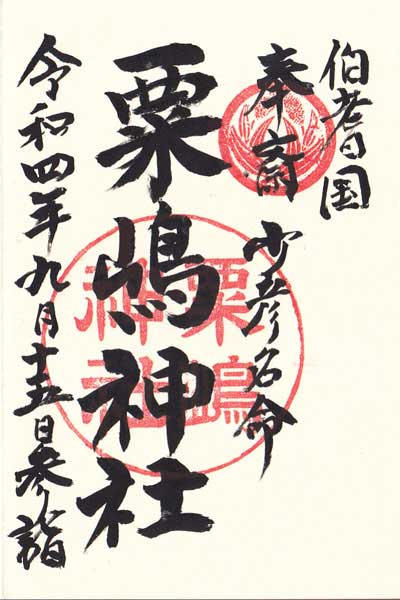 伯耆国
奉斎 少彦名命
粟嶋神社
粟嶋神社
令和四年九月十五日参詣